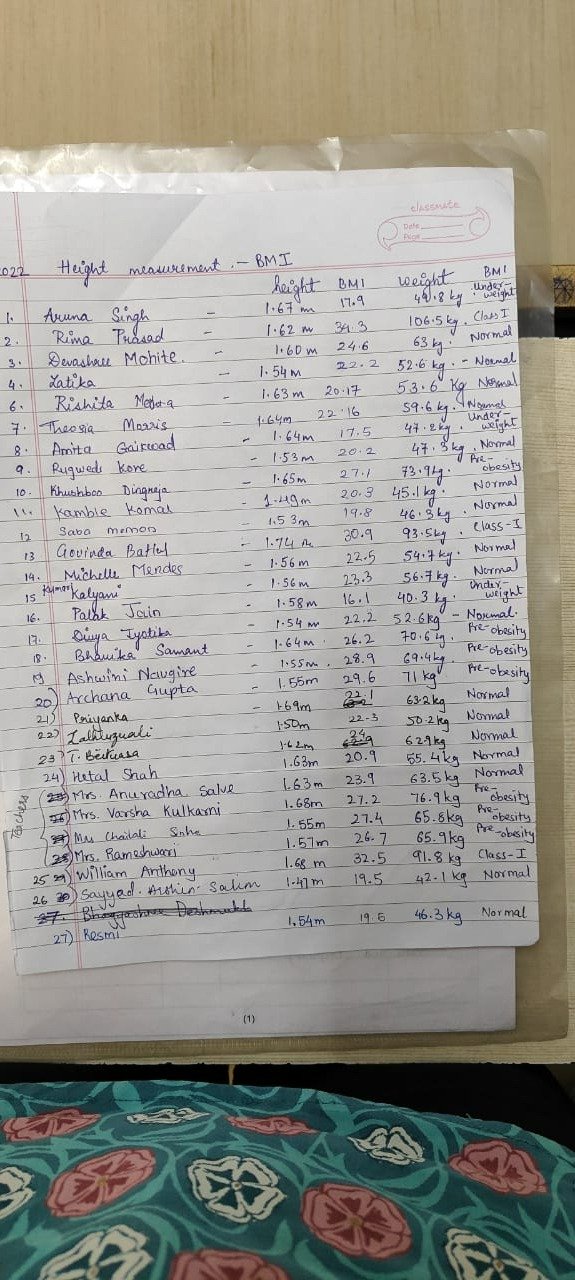 classmate
Date
Page
2022 Height measurement. - BMI
height BMI weight BMI
1. Aruna Singh - 1.67 m 17.9 49.8 kg Under-weight
2. Rima Prasad - 1.62 m 34.3 106.5 kg. Class I
3. Devashree Mohite. - 1.60 m 24.6 63 kg. Normal
4. Latika - 1.54m 22.2 52.6 kg. - Normal
6. Rishita - 1.63 m 20.17 53.6 kg Normal
7. Theosia Morris 1.64m 22.16 59.6 kg. Normal
8. Amita Gaikwad - 1.64m 17.5 47.2 kg. Under-weight
9. Rugweds Kore - 1.53m 20.2 47.3 kg. Normal
10. Khushboo Dingreja 1.65m 27.1 73.9 kg. Pre-obesity
11. Kamble Komal - 1.49m 20.3 45.1 kg. Normal
12 Saba memon 1.53m 19.8 46.3 kg. Normal
13 Govinda - 1.74 m 30.9 93.5 kg. Class-I
14. Michelle Mendes - 1.56m 22.5 54.7 kg. Normal
15 Kumari Kalyani - 1.56m 23.3 56.7 kg. Normal
16. Palak Jain - 1.58m 16.1 40.3 kg. Under-weight
17. Divya Jyotika - 1.54m 22.2 52.6kg - Normal.
18. Bhavika Samant - 1.64m. 26.2 70.6 kg. Pre-obesity
19 Ashwini Navgire - 1.55m. 28.9 69.4kg. Pre-obesity
20) Archana Gupta - 1.55m 29.6 71 kg Pre-obesity
21) Priyanka - 1.69m 22.1 63.2kg Normal
22) 1.50m 22.3 50.2kg Normal
23) T. 1.62m 24 62.9kg Normal
24) Hetal Shah 1.63m 20.9 55.4kg Normal
Teachers
Mrs. Anuradha Salve 1.63m 23.9 63.5kg Normal
Mrs. Varsha Kulkarni 1.68m 27.2 76.9kg Pre-obesity
Mrs Chaitali 1.55m 27.4 65.8kg Pre-obesity
Mrs. Rameshwari 1.57m 26.7 65.9kg Pre-obesity
25 William Anthony 1.68 m 32.5 91.8 kg Class-I
26 Sayyad. Arshin. Salim 1.47m 19.5 42.1 kg Normal
27. Bhagyashree Deshmukh
27) Resmi 1.54m 19.5 46.3 kg Normal
(1)